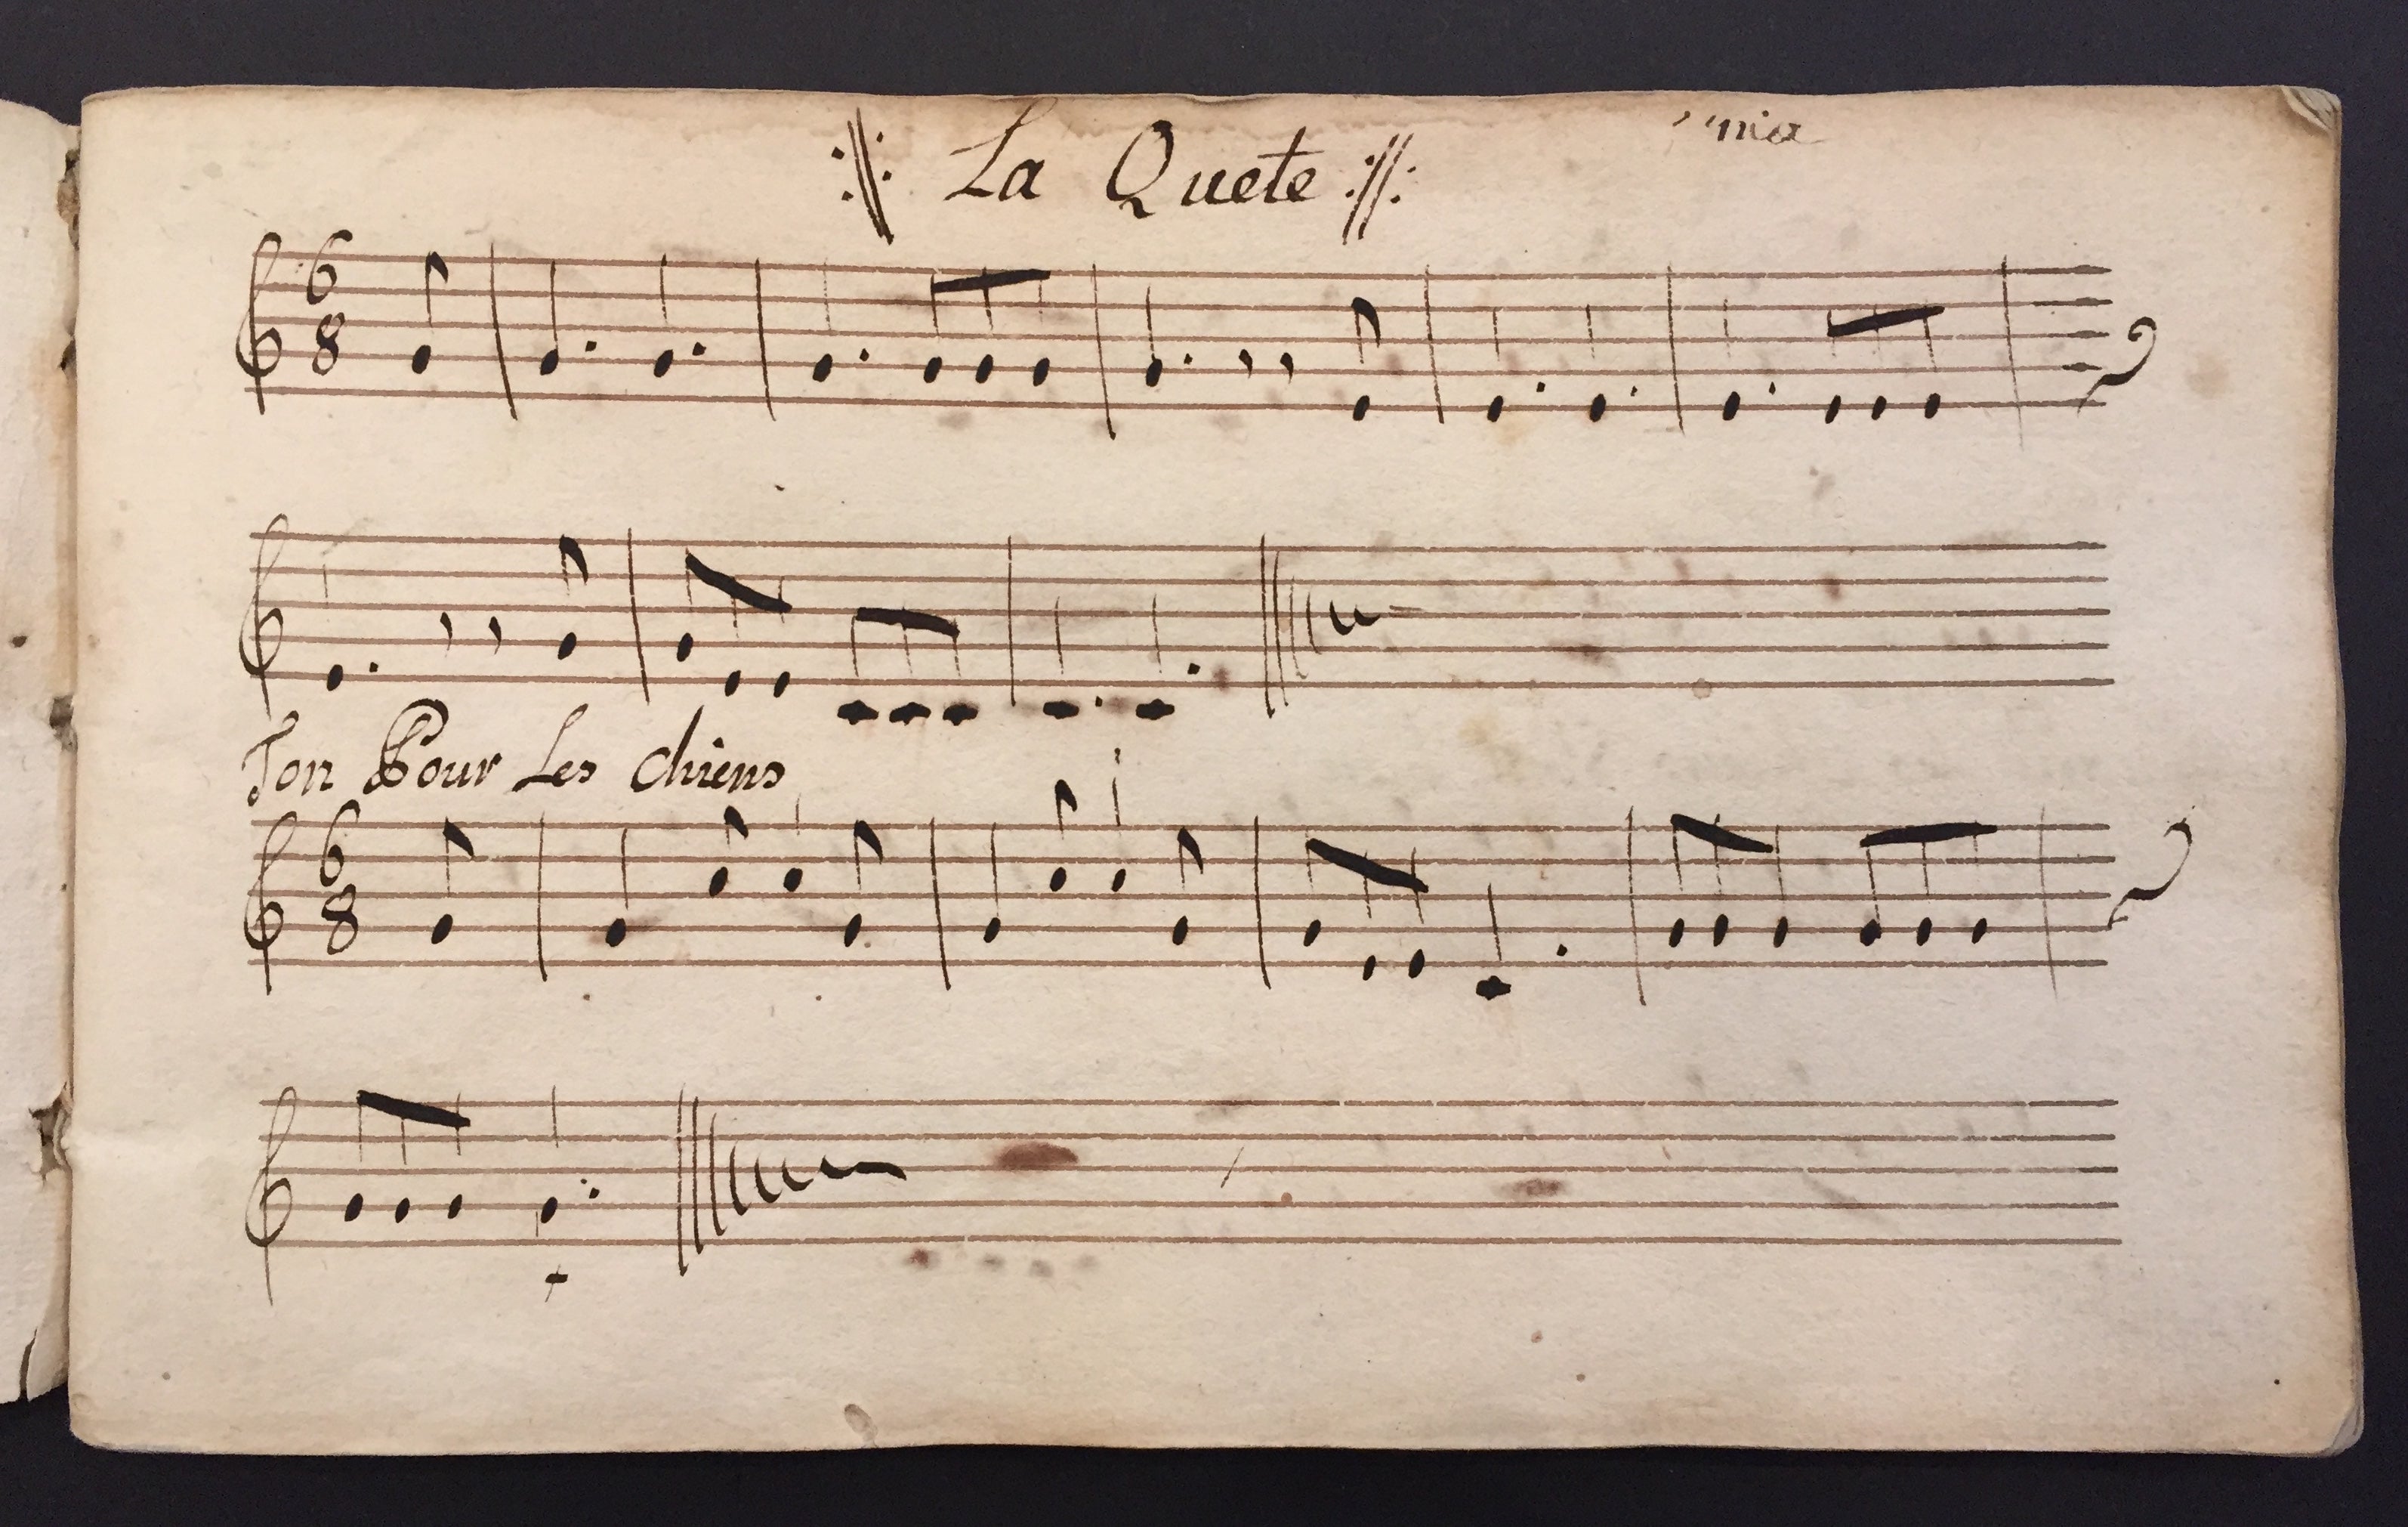 :||: La Quete :||:
6
8
Ton Pour Les chiens
6
8